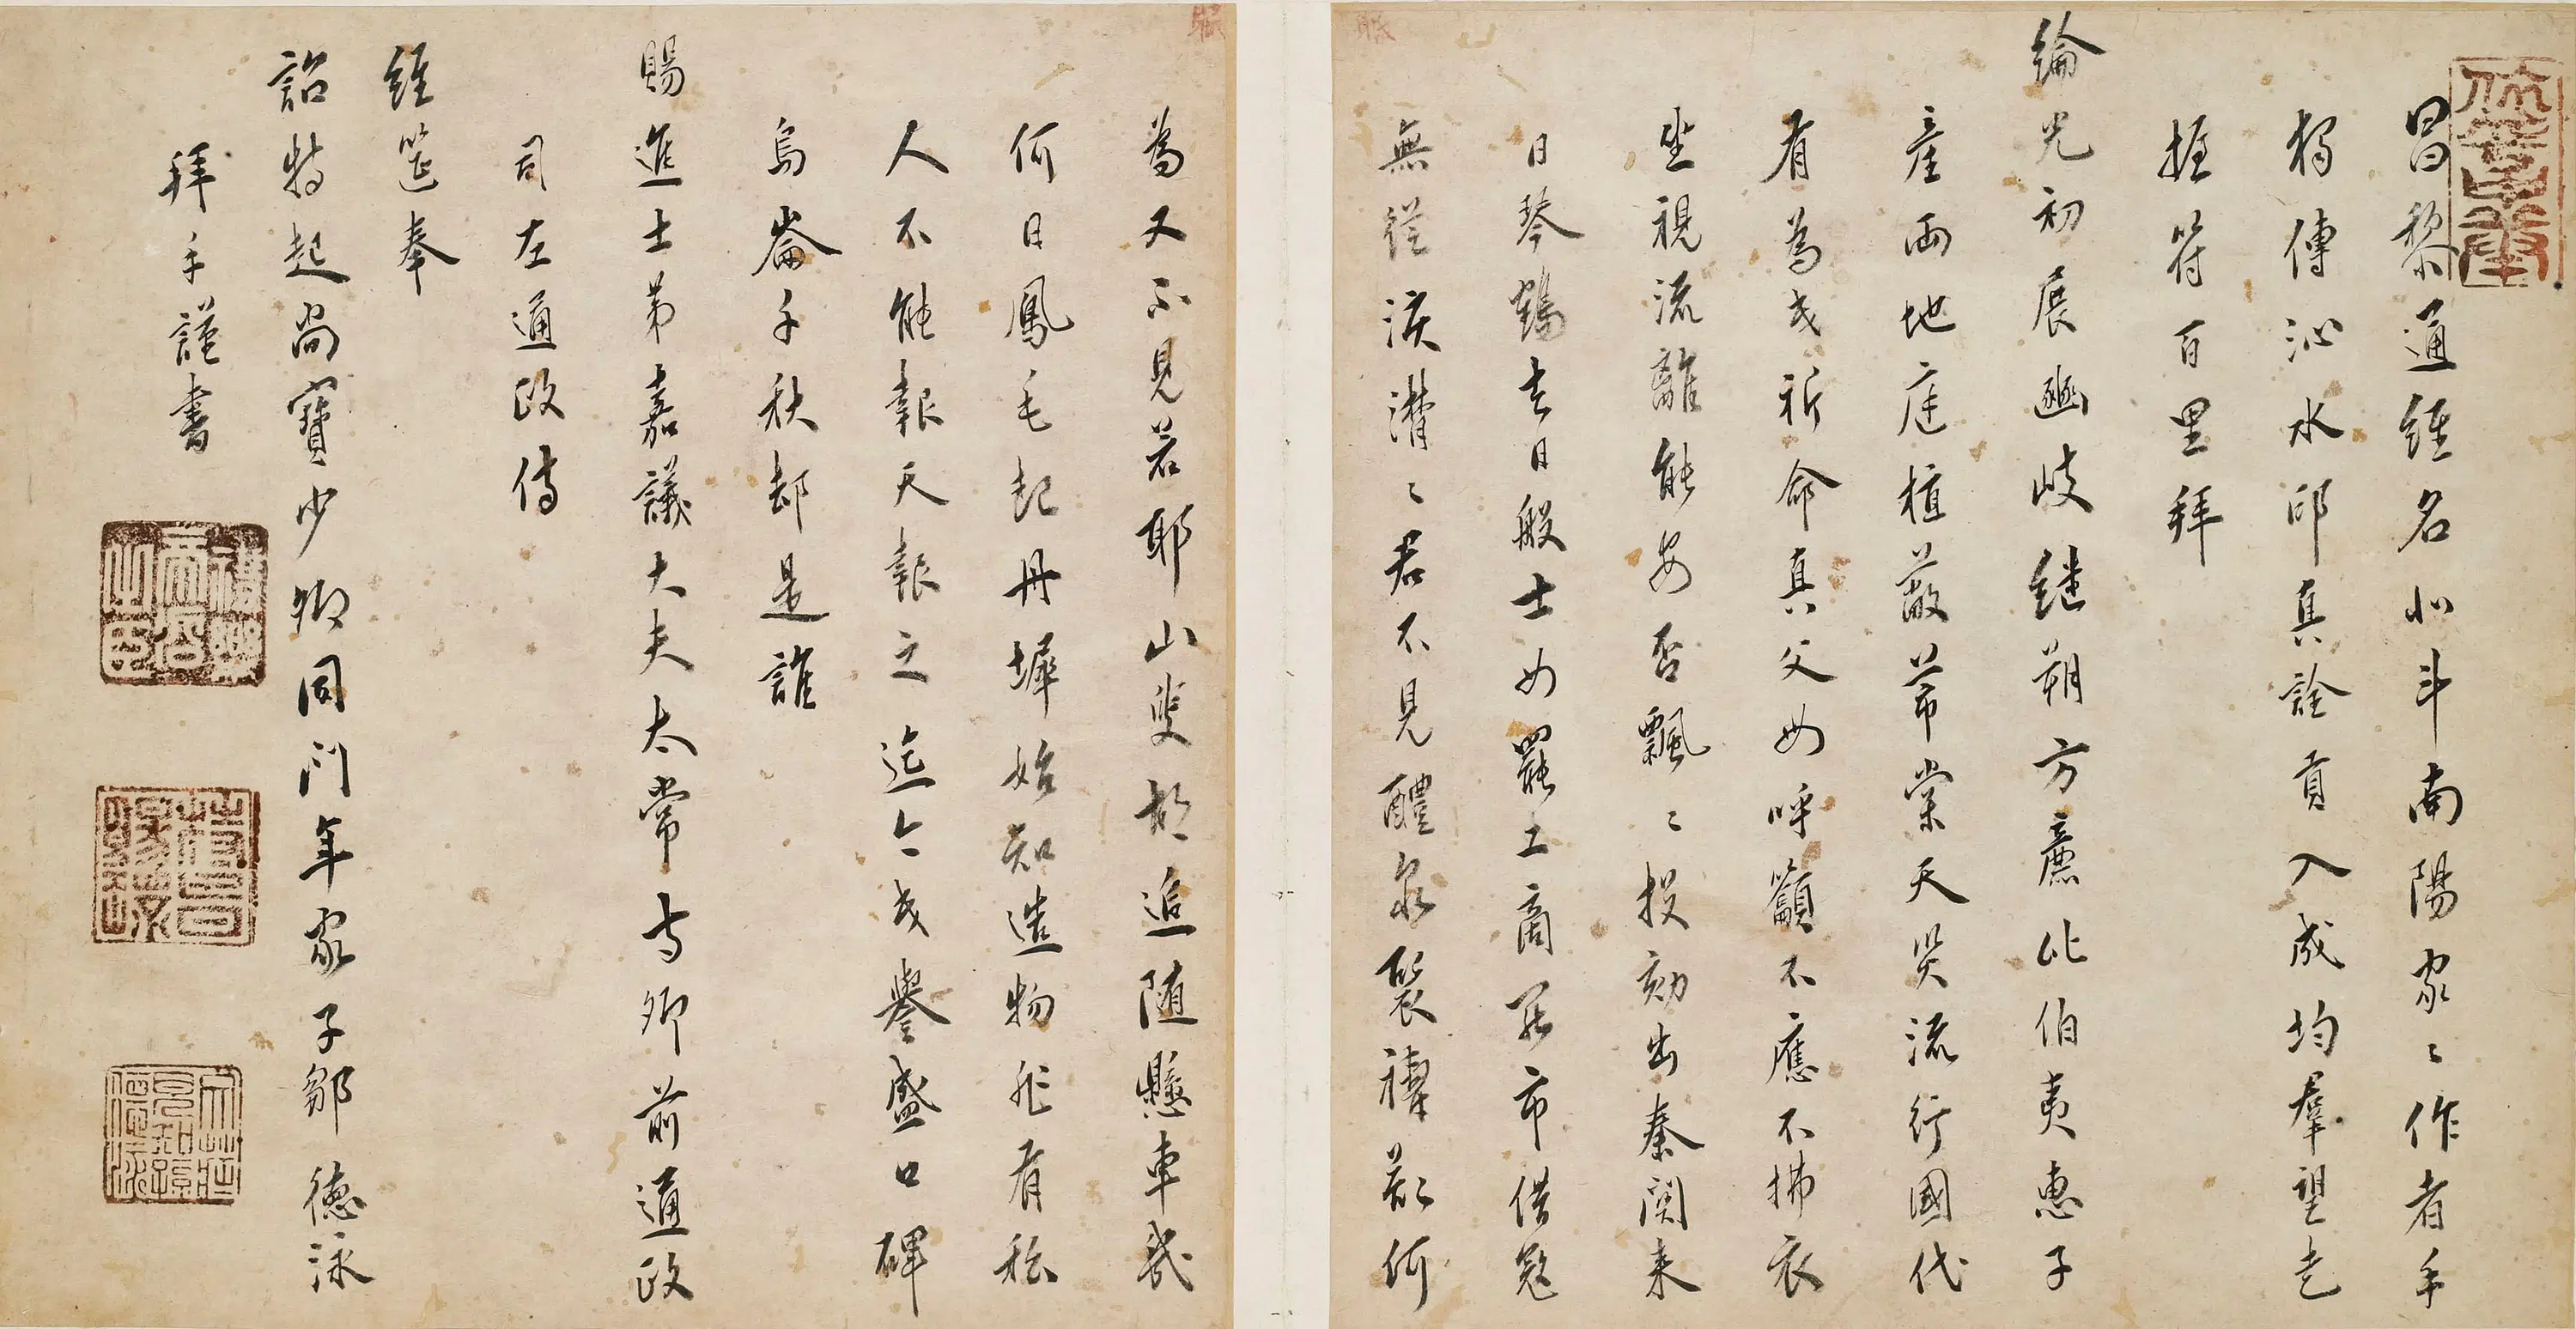 昌黎通經名北斗南陽家〻作者手
獨傳沁水邱真詮貢入成均羣望走
握符百里拜
綸光初展豳岐継朔方廉比伯夷惠子
産両地庭植蔽芾棠天災流行國代
有為民祈命真父母呼籲不應不拂衣
坐視流離能安否飄〻投劾出秦関来
日琴鶴去日般士女罷工商罷市借寇
無従淚潸〻君不見醴泉裂禪歌何
為又不見若耶山叟趋追随懸車幾
何日鳳毛起丹墀始知造物非有私
人不能報天報之迄今民譽盛口碑
烏崙千秋却是誰
賜進士第嘉議大夫太常寺卿前通政
司左通政侍
經筵奉
詔特起尚寶少卿同門年家子鄒德泳
拜手謹書